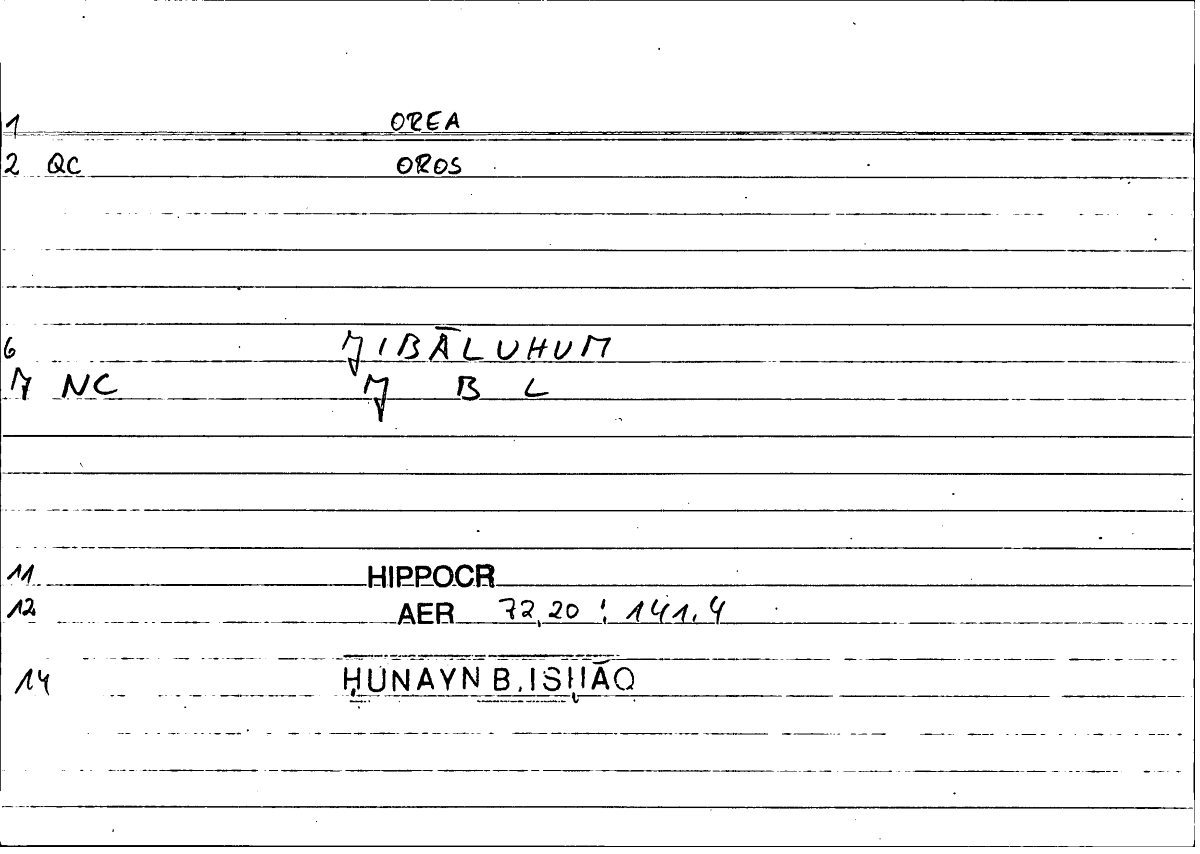 1 OREA
2 QC OROS
6 JIBĀLUHUM
7 NC J B L
11 HIPPOCR
12 AER 72,20 : 141.4
14 ḤUNAYN B.ISḤĀQ